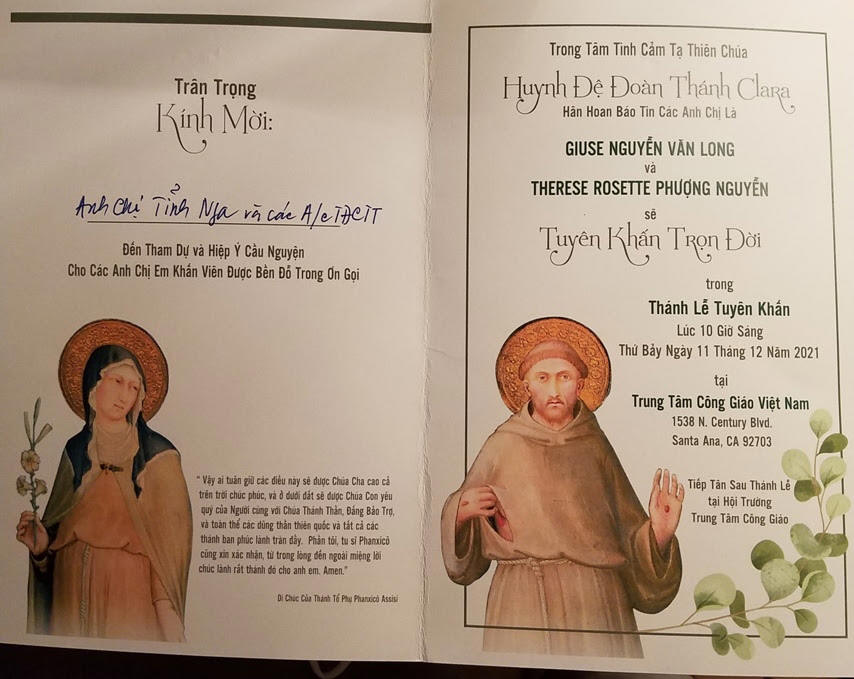 Trân Trọng
Kính Mời:
Anh Chị Tỉnh Nga và các A/c TĐCTT
Đến Tham Dự và Hiệp Ý Cầu Nguyện
Cho Các Anh Chị Em Khấn Viên Được Bền Đỗ Trong Ơn Gọi
“ Vậy ai tuân giữ các điều này sẽ được Chúa Cha cao cả
trên trời chúc phúc, và ở dưới đất sẽ được Chúa Con yêu
quý của Người cùng với Chúa Thánh Thần, Đấng Bảo Trợ,
và toàn thể các dũng thần thiên quốc và tất cả các
thánh ban phúc lành tràn đầy. Phần tôi, tu sĩ Phanxicô
cũng xin xác nhận, từ trong lòng đến ngoài miệng lời
chúc lành rất thánh đó cho anh em. Amen.”
Di Chúc Của Thánh Tổ Phụ Phanxicô Assisi
Trong Tâm Tình Cảm Tạ Thiên Chúa
Huynh Đệ Đoàn Thánh Clara
Hân Hoan Báo Tin Các Anh Chị Là
GIUSE NGUYỄN VĂN LONG
và
THERESE ROSETTE PHƯỢNG NGUYỄN
sẽ
Tuyên Khấn Trọn Đời
trong
Thánh Lễ Tuyên Khấn
Lúc 10 Giờ Sáng
Thứ Bảy Ngày 11 Tháng 12 Năm 2021
tại
Trung Tâm Công Giáo Việt Nam
1538 N. Century Blvd.
Santa Ana, CA 92703
Tiếp Tân Sau Thánh Lễ
tại Hội Trường
Trung Tâm Công Giáo